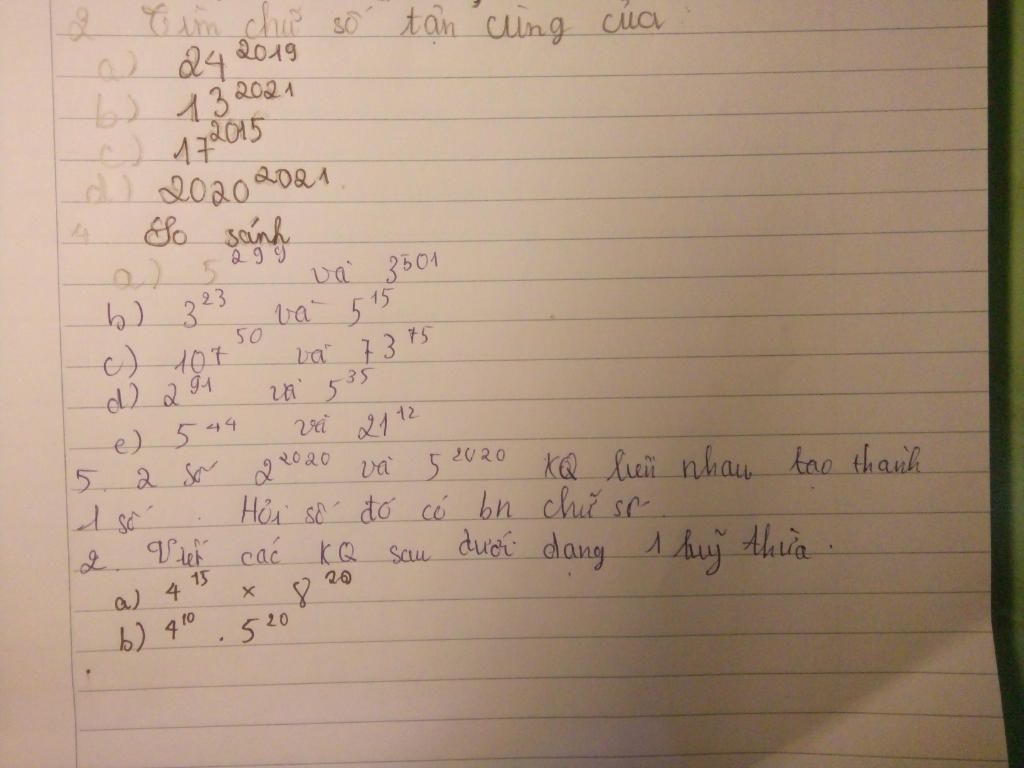 2 Tìm chữ số tận cùng của
a) 24^2019
b) 13^2021
c) 17^2015
d) 2020^2021
4. So sánh
a) 5^299 và 3^501
b) 3^23 và 5^15
c) 107^50 và 73^75
d) 2^91 và 5^35
e) 5^44 và 21^12
5. 2 số 2^2020 và 5^2020 KQ liền nhau tạo thành
1 số. Hỏi số đó có bn chữ số.
2. Viết các KQ sau dưới dạng 1 luỹ thừa.
a) 4^15 × 8^20
b) 4^10 . 5^20